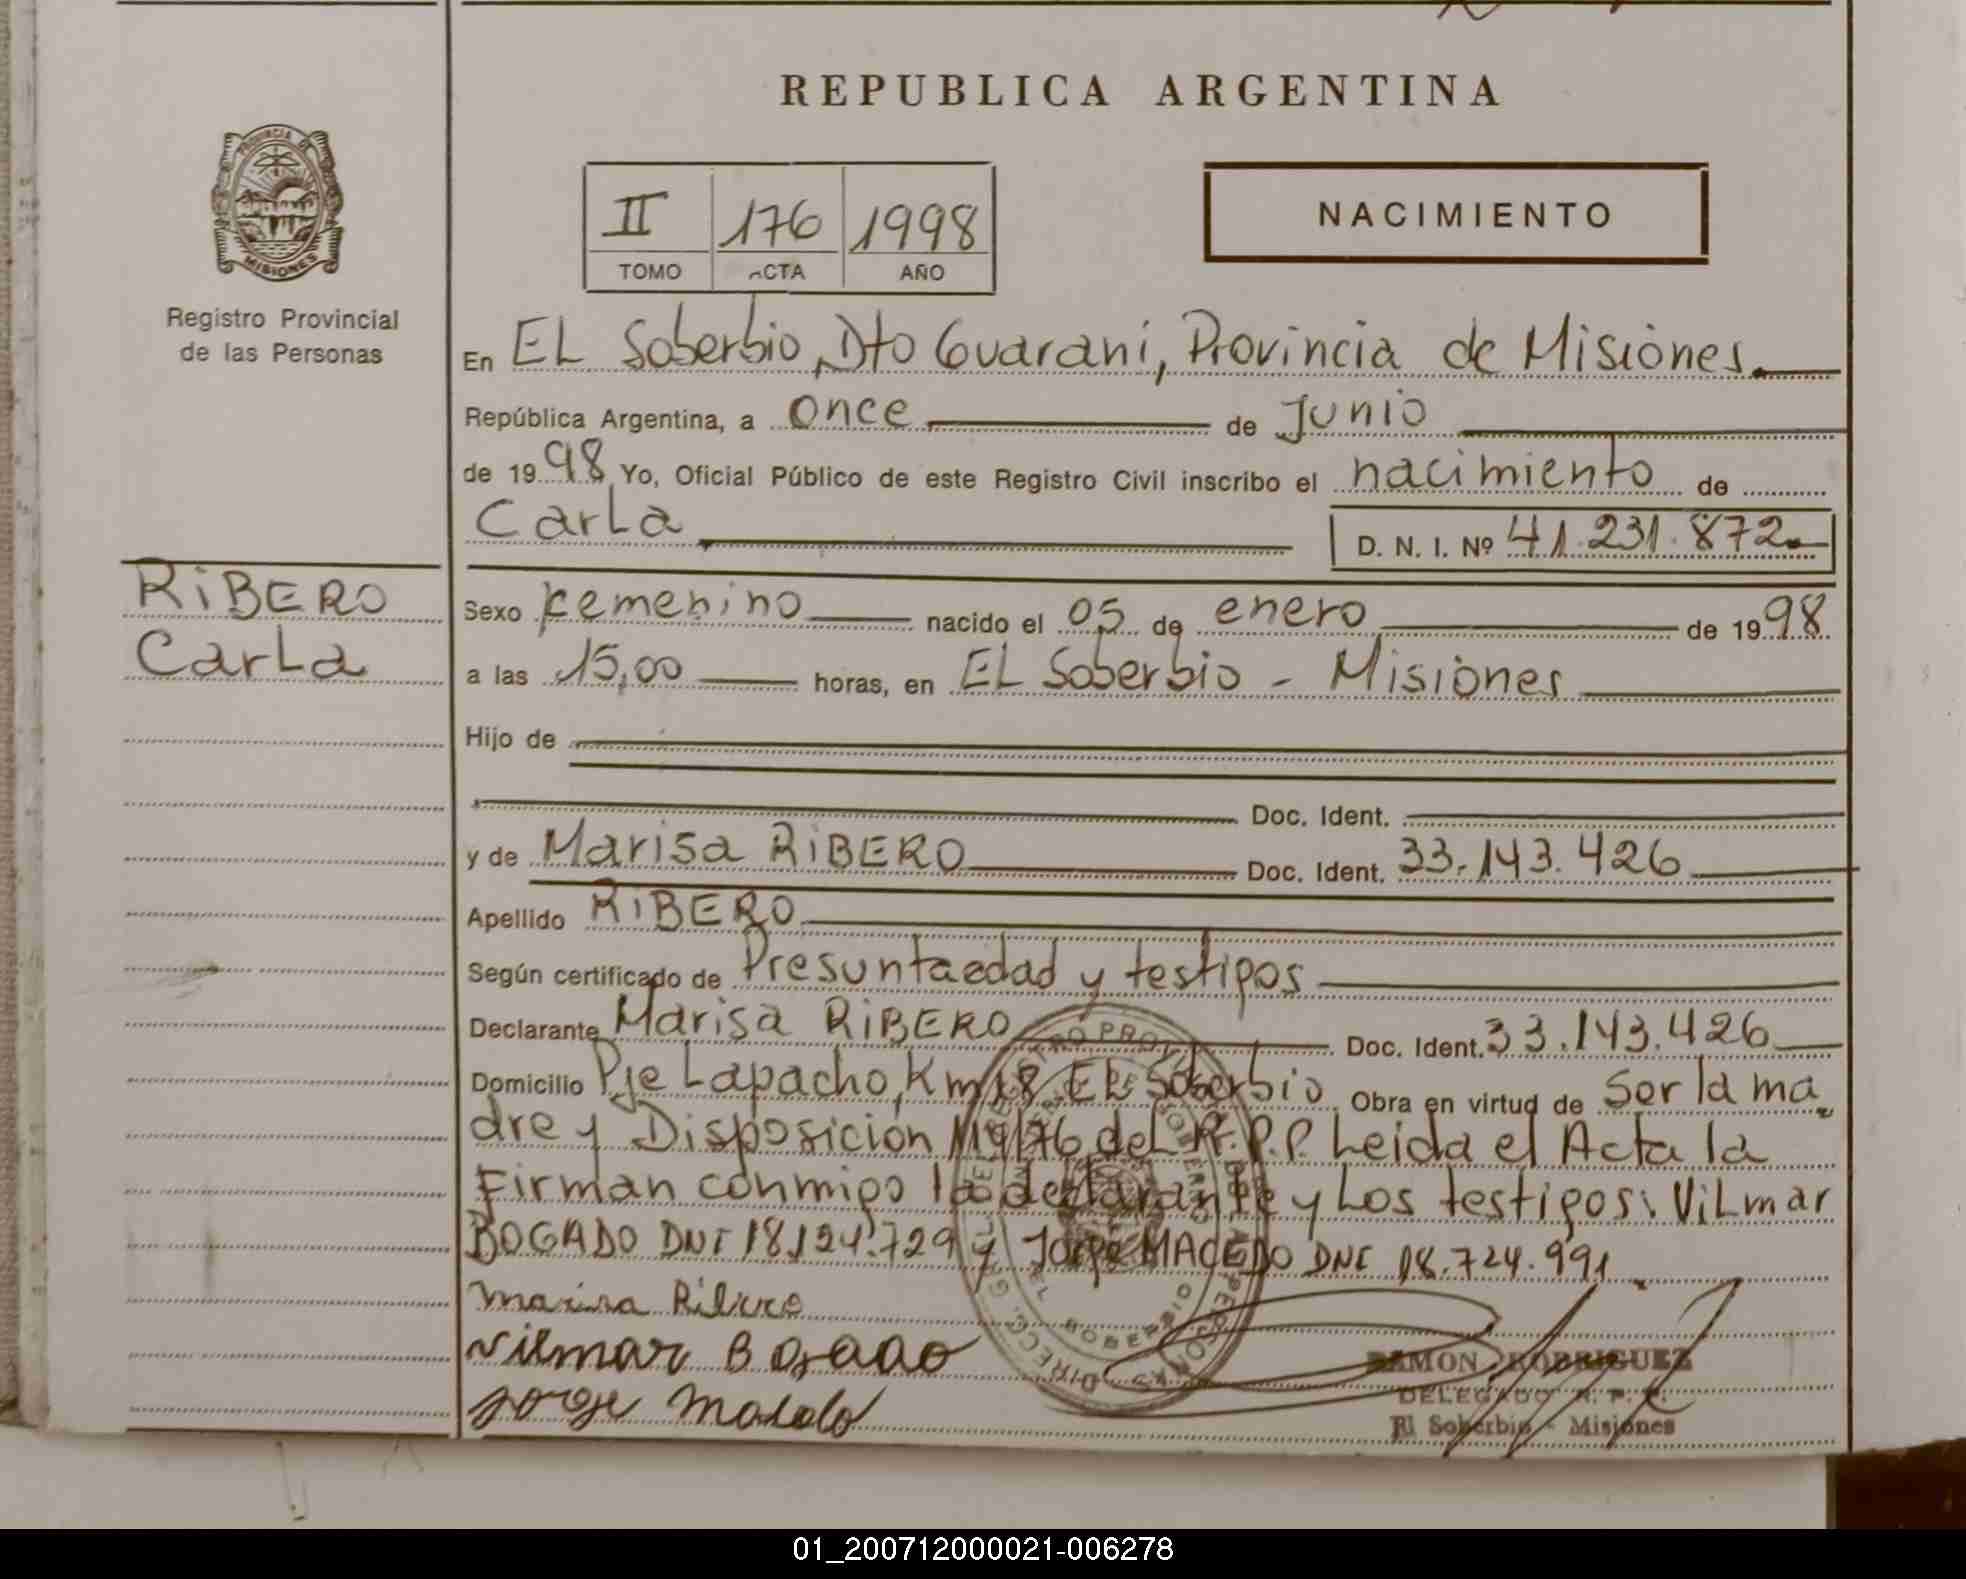 REPUBLICA ARGENTINA
PROVINCIA DE
MISIONES
Registro Provincial
de las Personas
II 176 1998
TOMO ACTA AÑO
NACIMIENTO
En EL Soberbio, Dto Guaraní, Provincia de Misiones.
República Argentina, a once de Junio
de 1998 Yo, Oficial Público de este Registro Civil inscribo el nacimiento de
CarLa D. N. I. Nº 41.231.872
RiBERO
CarLa
Sexo Femenino nacido el 05 de enero de 1998
a las 15,00 horas, en EL Soberbio - Misiones
Hijo de
Doc. Ident.
y de Marisa RiBERO Doc. Ident. 33.143.426
Apellido RiBERO
Según certificado de Presunta edad y testigos
Declarante Marisa RiBERO Doc. Ident. 33.143.426
Domicilio Pje Lapacho, Km 18 EL Soberbio Obra en virtud de Ser la ma
dre y Disposición 119/76 deL R.P.P. Leida el Acta la
Firman conmigo la declarante y Los testigos: ViLmar
BOGADO DNI 18.124.729 y Jorge MACEDO DNI 18.724.991
Marisa Ribero
Vilmar Bogado
Jorge Macedo
RAMON RODRIGUEZ
DELEGADO R. P. P.
El Soberbio - Misiones
01_200712000021-006278